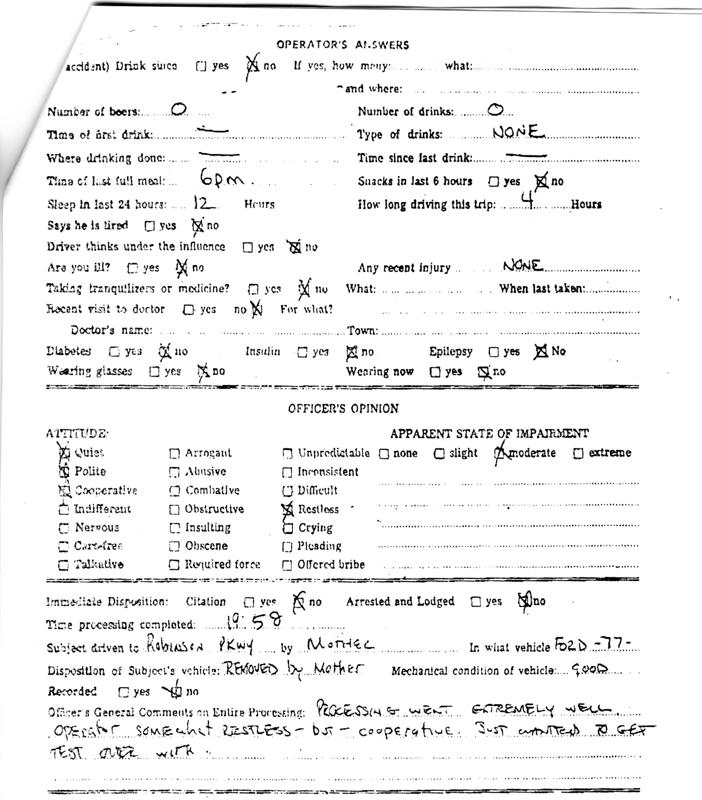 OPERATOR'S ANSWERS
accident) Drink since ☐ yes ☒ no If yes, how many: what:
and where:
Number of beers: O Number of drinks: O
Time of first drink: — Type of drinks: NONE
Where drinking done: — Time since last drink: —
Time of last full meal: 6pm. Snacks in last 6 hours ☐ yes ☒ no
Sleep in last 24 hours: 12 Hours How long driving this trip: 4 Hours
Says he is tired ☐ yes ☒ no
Driver thinks under the influence ☐ yes ☒ no
Are you ill? ☐ yes ☒ no Any recent injury NONE
Taking tranquilizers or medicine? ☐ yes ☒ no What: When last taken:
Recent visit to doctor ☐ yes no ☒ For what?
Doctor's name: Town:
Diabetes ☐ yes ☒ no Insulin ☐ yes ☒ no Epilepsy ☐ yes ☒ No
Wearing glasses ☐ yes ☒ no Wearing now ☐ yes ☒ no
OFFICER'S OPINION
ATTITUDE: APPARENT STATE OF IMPAIRMENT
☒ Quiet ☐ Arrogant ☐ Unpredictable ☐ none ☐ slight ☒ moderate ☐ extreme
☒ Polite ☐ Abusive ☐ Inconsistent
☒ Cooperative ☐ Combative ☐ Difficult
☐ Indifferent ☐ Obstructive ☒ Restless
☐ Nervous ☐ Insulting ☐ Crying
☐ Care-free ☐ Obscene ☐ Pleading
☐ Talkative ☐ Required force ☐ Offered bribe
Immediate Disposition: Citation ☐ yes ☒ no Arrested and Lodged ☐ yes ☒ no
Time processing completed: 19:58
Subject driven to Robinson PKWY by MOTHER In what vehicle FORD -77-
Disposition of Subject's vehicle: REMOVED by Mother Mechanical condition of vehicle: GOOD
Recorded ☐ yes ☒ no
Officer's General Comments on Entire Processing: PROCESSING WENT EXTREMELY WELL.
OPERATOR SOMEWHAT RESTLESS - BUT - COOPERATIVE. JUST WANTED TO GET
TEST OVER WITH.